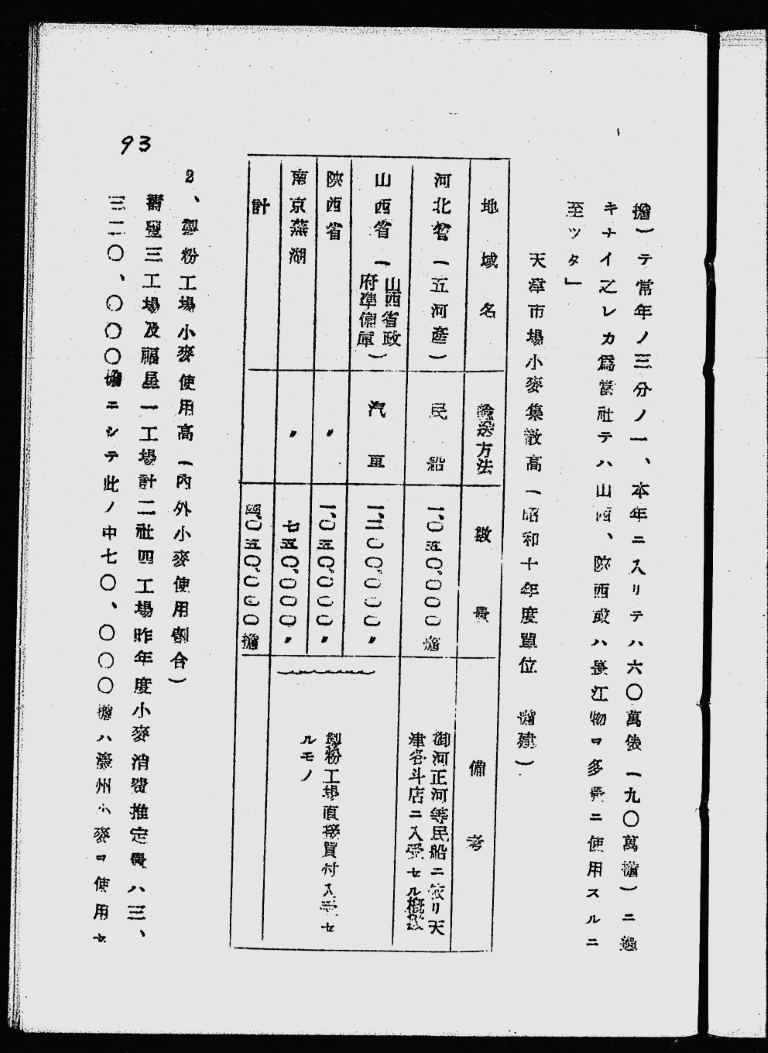 擔)テ常年ノ三分ノ一、本年ニ入リテハ六〇萬俵(九〇萬擔)ニ過
キナイ之レカ爲當社テハ山西、陝西或ハ長江物ヲ多量ニ使用スルニ
至ツタ」
天津市場小麥集散高(昭和十年度單位 擔建)
地域名 輸送方法 數量 備考
河北省(五河產) 民船 一、〇五〇、〇〇〇擔 御河正河等民船ニ依リ天
津各斗店ニ入受セル概數
山西省(山西省政
府準備庫) 汽車 一、二〇〇、〇〇〇〃
陝西省 〃 一、〇五〇、〇〇〇〃 製粉工場直接買付入受セ
ルモノ
南京蕪湖 〃 七五〇、〇〇〇〃
計 四、〇五〇、〇〇〇擔
2、製粉工場小麥使用高(內外小麥使用割合)
壽豐三工場及福星一工場計二社四工場昨年度小麥消費推定量ハ三、
三二〇、〇〇〇擔ニシテ此ノ中七〇、〇〇〇擔ハ濠州小麥ヲ使用セ
93